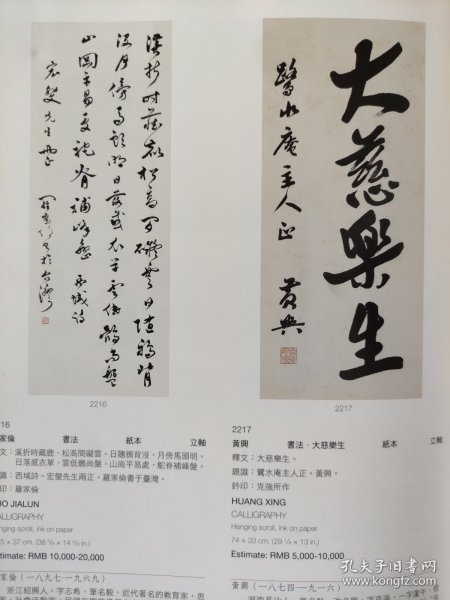 溪折時藏鹿松高間礙雲日隨鴉背
沒月傍馬頭明日落感衣單雲低鶴尚盤
山岡平易處駝脊補峰巒 西域詩
宏夔先生兩正 羅家倫書於台灣
2216
大慈樂生
鷺水庵主人正 黃興
2217
16
家倫 書法 紙本 立軸
文：溪折時藏鹿，松高間礙雲。日隨鴉背沒，月傍馬頭明。
日落感衣單，雲低鶴尚盤。山崗平易處，駝脊補峰盤。
識：西域詩。宏夔先生兩正。羅家倫書于臺灣。
印：羅家倫
O JIALUN
CALLIGRAPHY
nging scroll, ink on paper
5 x 37 cm. (38 1/8 x 14 5/8 in.)
stimate: RMB 10,000-20,000
家倫（一八九七-一九六九）
浙江紹興人，字志希，筆名毅，近代著名的教育家，思
2217
黃興 書法·大慈樂生 紙本 立軸
釋文：大慈樂生。
題識：鷺水庵主人正，黃興。
鈐印：克強所作
HUANG XING
CALLIGRAPHY
Hanging scroll, ink on paper
74 x 33 cm. (29 1/8 x 13 in.)
Estimate: RMB 5,000-10,000
黃興（一八七四-一九一六）
孔夫子旧书网